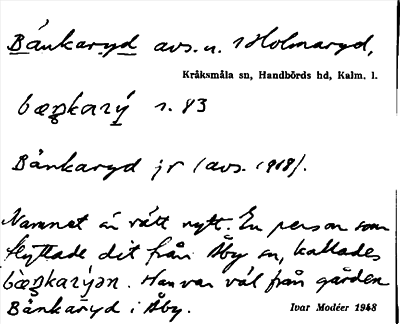 Bánkaryd avs. u. Holmaryd,
Kråksmåla sn, Handbörds hd, Kalm. l.
s. 83
Bånkaryd jr (avs. 1918).
Namnet är rätt nytt. En person som
flyttade dit från Åby sn, kallades
Han var väl från gården
Bånkaryd i Åby.
Ivar Modéer 1948